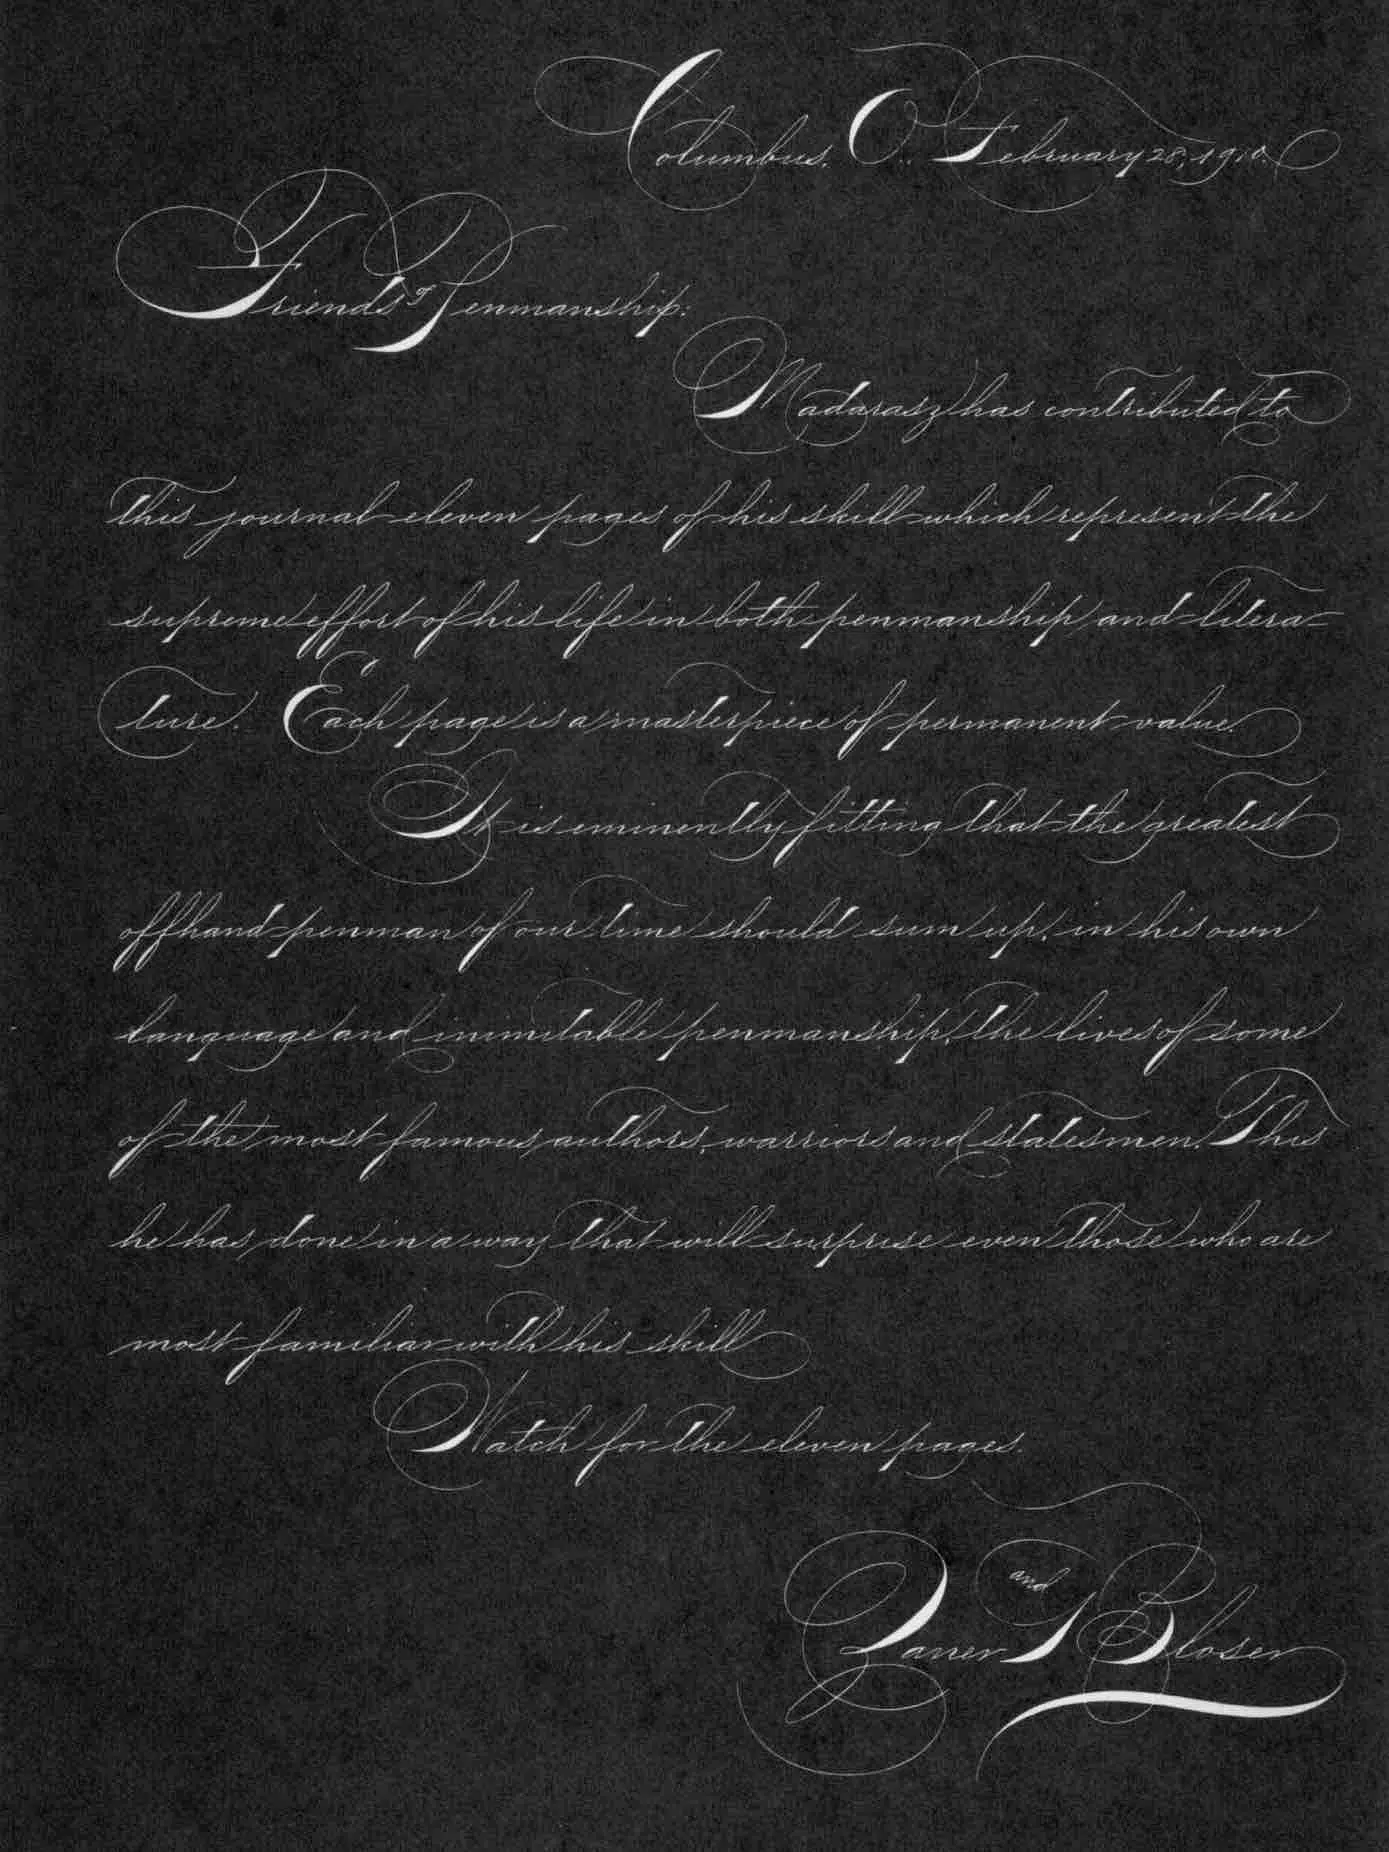 Columbus, O., February 28, 1910.
Friends of Penmanship:
Madarasz has contributed to
this journal eleven pages of his skill which represent the
supreme effort of his life in both penmanship and litera-
ture. Each page is a masterpiece of permanent value.
It is eminently fitting that the greatest
offhand penman of our time should sum up, in his own
language and inimitable penmanship, the lives of some
of the most famous authors, warriors and statesmen. This
he has done in a way that will surprise even those who are
most familiar with his skill
Watch for the eleven pages.
Zaner and Bloser